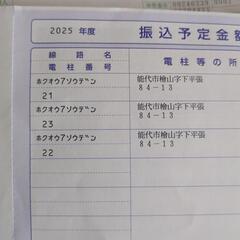 2025 年度
振込予定金額
線路名
電柱番号
電柱等の所
ホクオウアソウデン
21
能代市檜山字下平張
84-13
ホクオウアソウデン
23
能代市檜山字下平張
84-13
ホクオウアソウデン
22
能代市檜山字下平張
84-13